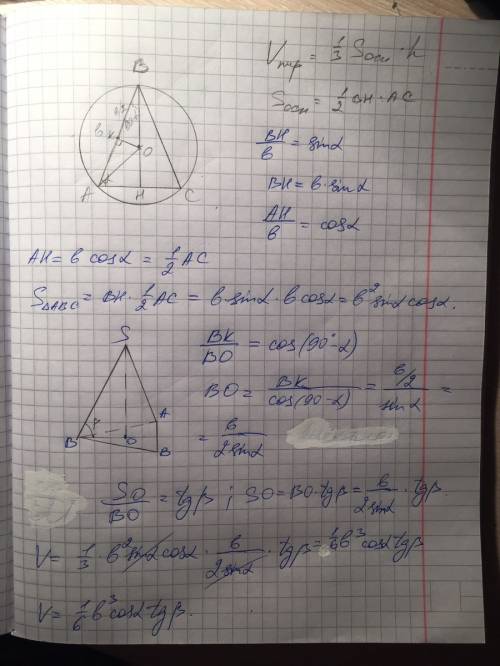 V пир = 1/3 Sосн · h
Sосн = 1/2 BH · AC
BH/b = sinα
BH = b · sinα
AH/b = cosα
B
b/2
90°-α
b K
O
A α H C
AH = b cosα = 1/2 AC
S△ABC = BH · 1/2 AC = b · sinα · b cosα = b² sinα cosα.
S
BK/BO = cos(90°-α)
BO = BK/cos(90-α) = (b/2)/sinα =
= b/(2sinα)
A
B β O B
SO/BO = tgβ ; SO = BO · tgβ = b/(2sinα) · tgβ.
V = 1/3 · b² sinα cosα · b/(2sinα) · tgβ = 1/6 b³ cosα tgβ
V = 1/6 b³ cosα tgβ.